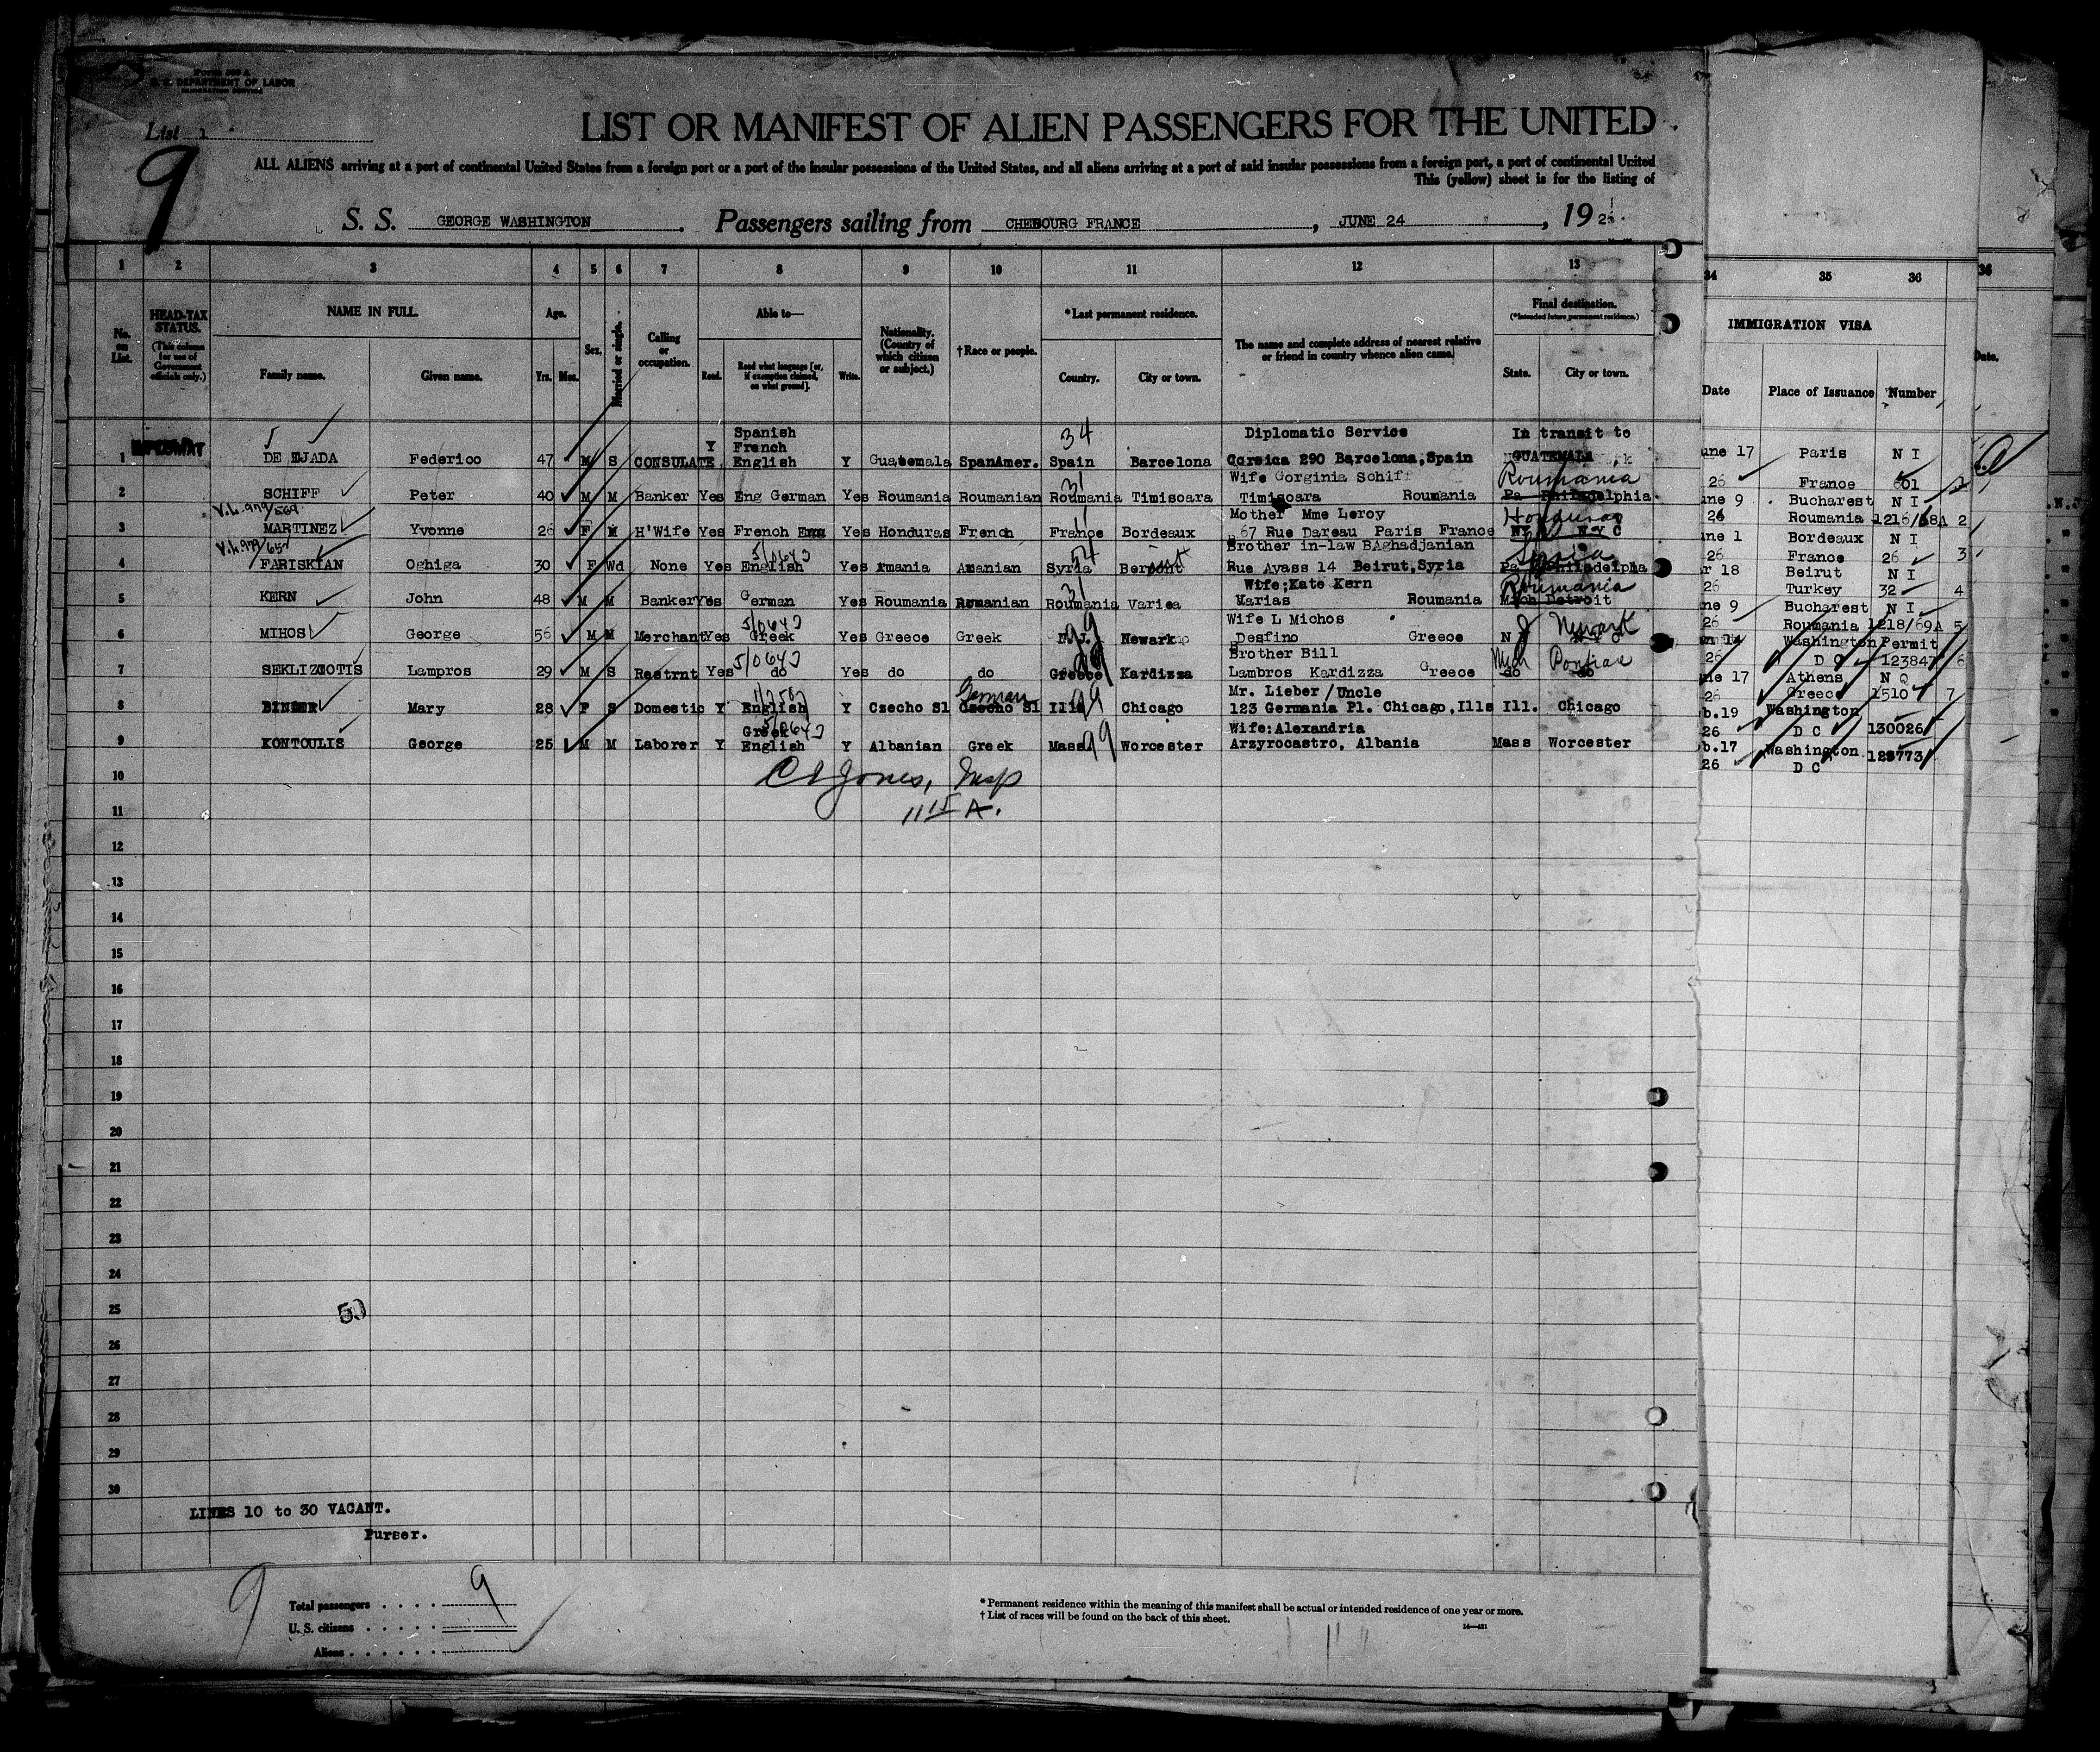 U. S. DEPARTMENT OF LABOR
IMMIGRATION SERVICE
List 1
9
LIST OR MANIFEST OF ALIEN PASSENGERS FOR THE UNITED
ALL ALIENS arriving at a port of continental United States from a foreign port or a port of the insular possessions of the United States, and all aliens arriving at a port of said insular possessions from a foreign port, a port of continental United
This (yellow) sheet is for the listing of
S. S. GEORGE WASHINGTON . Passengers sailing from CHEBOURG FRANCE , JUNE 24 , 19 26
1 2 3 4 5 6 7 8 9 10 11 12 13 34 35 36
No. on List.
HEAD-TAX STATUS.
(This column for use of Government officials only.)
NAME IN FULL.
Family name. Given name.
Age.
Yrs. Mos.
Sex.
Married or single.
Calling or occupation.
Able to—
Read. Read what language [or, if exemption claimed, on what ground]. Write.
Nationality. (Country of which citizen or subject.)
†Race or people.
*Last permanent residence.
Country. City or town.
The name and complete address of nearest relative or friend in country whence alien came.
Final destination.
(*Intended future permanent residence.)
State. City or town.
IMMIGRATION VISA
Date Place of Issuance Number
Date.
Spanish 34 Diplomatic Service In transit to
Y French
1 DE TEJADA Federico 47 M S CONSULATE English Y Guatemala SpanAmer. Spain Barcelona Corsica 290 Barcelona,Spain GUATEMALA une 17 Paris N I
31 Wife Gorginia Schiff Roumania
2 SCHIFF Peter 40 M M Banker Yes Eng German Yes Roumania Roumanian Roumania Timisoara Timisoara Roumania Pa Philadelphia 26 France 601
une 9 Bucharest N I
V.L. 979/569 Mother Mme Leroy Honduras
3 MARTINEZ Yvonne 26 F M H'Wife Yes French Eng Yes Honduras French France Bordeaux 67 Rue Dareau Paris France NY N Y C 26 Roumania 1216/68A 2
une 1 Bordeaux N I
V.L. 979/657 5/0643 54 Brother in-law BAghadjanian Syria
4 FARISKIAN Oghiga 30 F Wd None Yes English Yes rmania Amanian Syria Rue Ayass 14 Beirut,Syria Pa Philadelpha 26 France 26 3
r 18 Beirut N I
31 Wife;Kate Kern Roumania
5 KERN John 48 M M Banker Yes German Yes Roumania Rumanian Roumania Variea Marias Roumania Mich Detroit 26 Turkey 32 4
ne 9 Bucharest N I
5/0643 99 Wife L Michos J Newark
6 MIHOS George 56 M M Merchant Yes Greek Yes Greece Greek N.J. Newark Desfino Greece N 26 Roumania 1218/69A 5
14 Washington Permit
5/0643 99 Brother Bill Mich Pontiac
7 SEKLIZIOTIS Lampros 29 M S Restrnt Yes do Yes do do Greece Kardizza Lambros Kardizza Greece do do 26 D C 123847 6
ne 17 Athens N Q
German 99 Mr. Lieber/Uncle
8 BINDER Mary 28 F S Domestic Y English Y Czecho Sl Czecho Sl Ills Chicago 123 Germania Pl. Chicago,Ills Ill. Chicago 26 Greece 1510 7
b.19 Washington
Greek 5/0643 99 Wife:Alexandria
9 KONTOULIS George 25 M M Laborer Y English Y Albanian Greek Mass Worcester Arzyrocastro, Albania Mass Worcester 26 D C 130026
b.17 Washington 128773
26 D C
C D Jones, Insp
10
11 11 15 A.
12
13
14
15
16
17
18
19
20
21
22
23
24
25 50
26
27
28
29
30
LINES 10 to 30 VACANT.
Purser.
9
Total passengers . . . . 9
U. S. citizens . . . . .
Aliens . . . . . .
* Permanent residence within the meaning of this manifest shall be actual or intended residence of one year or more.
† List of races will be found on the back of this sheet.